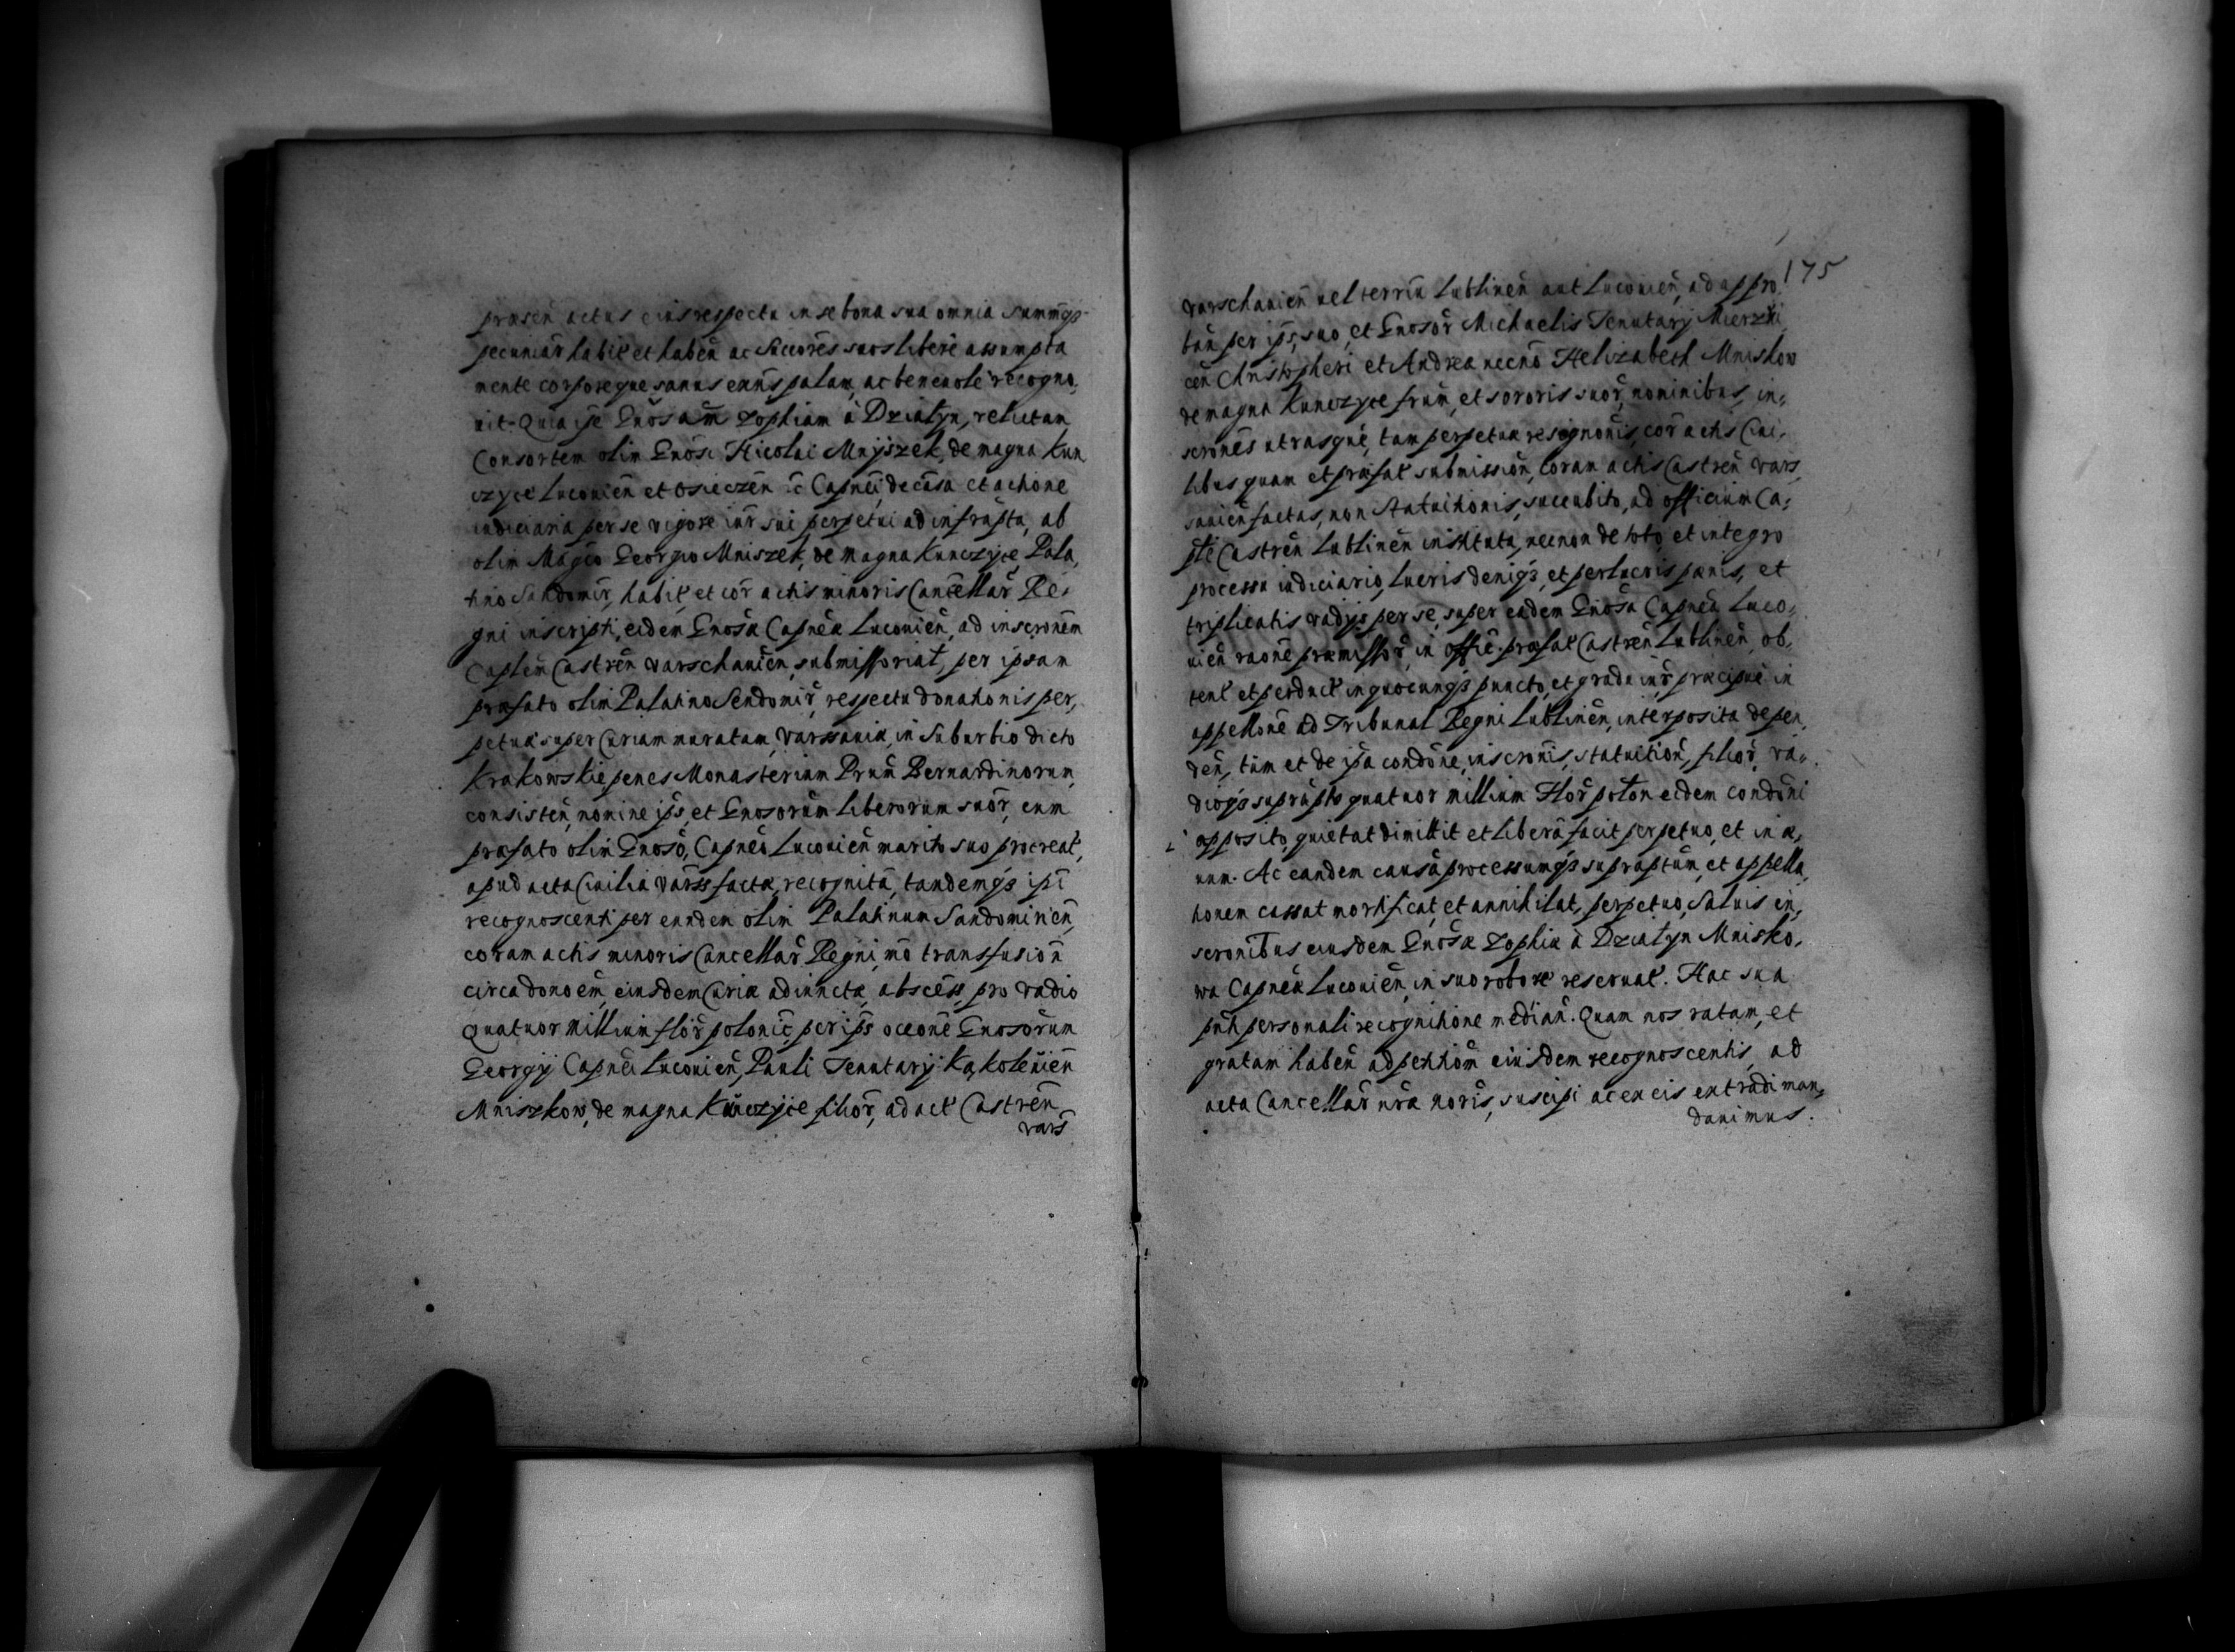 præsen̄ actus eius respectu in se bona sua omnia summq̃s
pecuniar̄ habit̄ et haben̄ ac Succores̄ suos libere assumpta
mente corporeque sanus exn̄s palam, ac beneuole recogno,
uit. Quia ip̄e Gn̄osam̄ Zophiam à Działyn, relictam
Consortem olim Gn̄osi Nicolai Mnÿszek, de magna Kun
czyce Luconien̄ et Osieczen̄ ēc Capn̄ei, de cāsa et actione
iudiciaria per se vigore iur̄ sui perpetui ad infrapta, ab
olim Magc̄o Georgio Mniszek, de magna Kunczyce, Pala,
tino Sandomir̄, habit̄, et cor̄ actis minoris Cancellar̄ Re,
gni inscripti, eidem Gn̄osæ Capn̄eæ Luconien̄, ad inscron̄em
Caplen̄ Castren̄ Varschauien̄, submissoriat̄, per ipsam
præfato olim Palatino Sendomir̄, respectu donationis per,
petuæ super Curiam muratam, Varssauiæ, in Suburbio dicto
Krakowskie penes Monasterium Prum̄ Bernardinorum,
consisten̄, nomine ip̄s, et Gn̄osorum liberorum suor̄, cum
præfato olim Gn̄oso, Capn̄eo Luconien̄ marito suo procreat̄,
apud acta Ciuilia Varss̄ factæ, recognitæ, tandemq̃s ip̄i
recognoscenti per eundem olim Palatinum Sandomirien̄,
coram actis minoris Cancellar̄ Regni, mo transfusion̄
circa donoem̄, eiusdem Curiæ adiunctæ, abscēss, pro vadio
Quatuor Millium flor̄ polonic̄, per ip̄s oc̄ceone Gn̄osorum
Georgij Capn̄ei Luconien̄, Pauli Tenutarij Kąkolenien̄
Mniszkow, de magna Kunczyce filior̄, ad act̄ Castren̄
Vars̄
175
Varschauien̄ uel terrn̄ Lublinen̄ aut Luconien̄, ad appro,
ban̄ per ip̄s, suo, et Gn̄osor̄ Michaelis Tenutarij Mierzui
cen̄ Christopheri et Andreæ necno Helizabeth Mniskow
de magna Kunczyce frum̄, et sororis suor̄, nominibus, in,
scrones̄ utrasque, tam perpetuæ resignonis̄, cor̄ actis Ciui,
libus quam et præfat̄ submission̄, coram actis Castren̄ Vars,
sauien̄ factas, non Statuitionis, succubito, ad officium Ca,
pl̄e Castren̄ Lublinen̄ instituta, necnon de toto, et integro
processu iudiciario, lucris deniq̃s, et perlucris pænis, et
triplicatis vadijs per se, super eadem Gn̄osa Capn̄ea Luco,
uien̄ raone præmissor̄, in offic̄. præfat̄ Castren̄ Lublinen̄, ob,
tent̄ et perduct̄ in quocunq̃s puncto, et gradu iur̄, præcipue in
appellone ad Tribunal Regni Lublinen̄, interposita depen,
den̄, tum et de ip̄a condone, inscronis̄, statuition̄, filior̄, va,
dioq̃s suprapto quatuor millium Flor̄ polon eidem condoni
apposito, quietat dimittit et liberū facit perpetuo, et in æ,
uum. Ac eandem causā processumq̃s supraptum, et appella,
tionem cassat mortificat, et annihilat, perpetuo, Saluis in,
scronibus eiusdem Gn̄osæ Zophiæ à Działyn Mnisko,
wa Capn̄eæ Luconien̄, in suo robore reseruat̄. Hac sua
pn̄ti personali recognitione median̄. Quam nos ratam, et
gratam haben̄ ad petitiom̄ eiusdem recognoscentis, ad
acta Cancellar̄ nræ noris̄, suscipi ac ex eis extradi man,
dauimus.